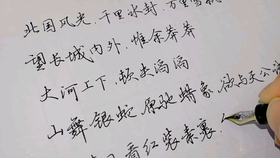 北国风光,千里冰封,万里雪飘
望长城内外,惟余莽莽
大河上下,顿失滔滔
山舞银蛇,原驰蜡象,欲与天公
看红装素裹,